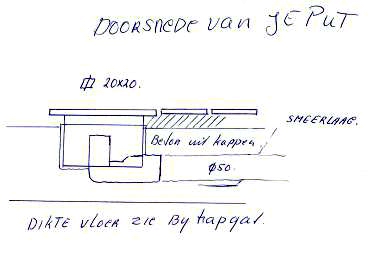 DOORSNEDE van JE PUT
20X20.
SMEERLAAG.
Beton uit kappen
Ø50.
DIKTE VLOER ZIE By trapgat.